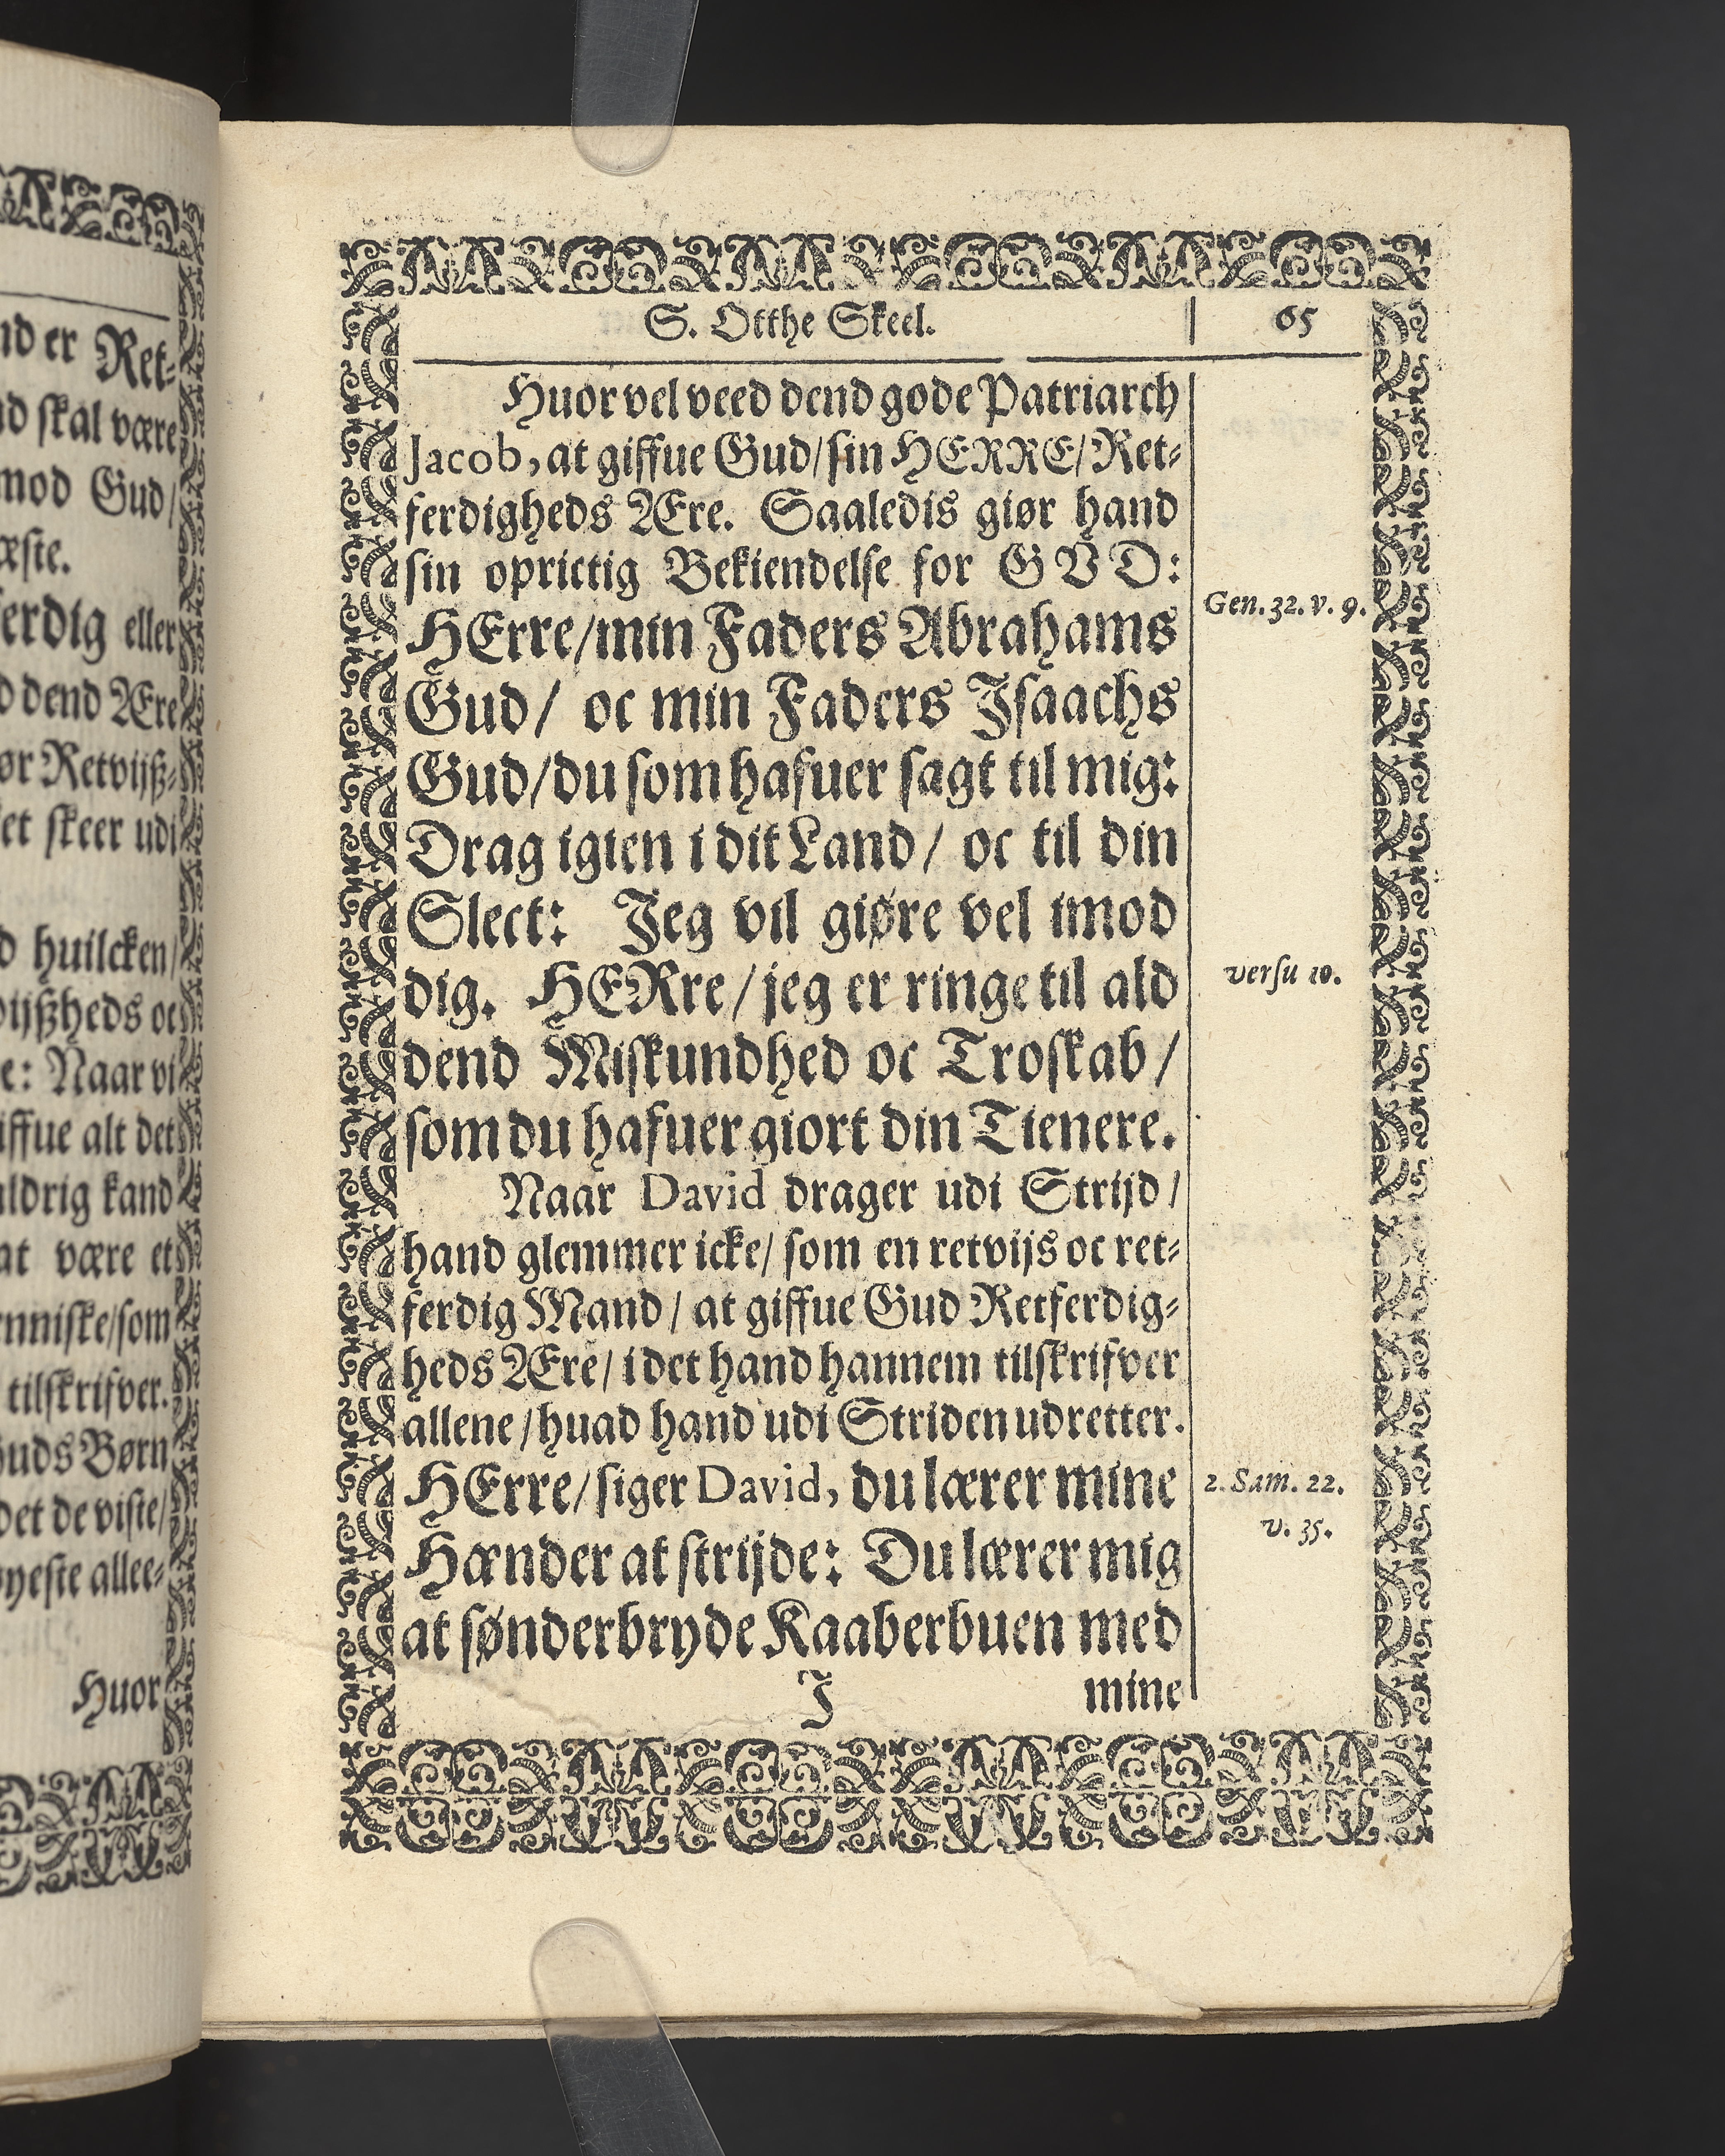 nd er Ret-
d skal være
mod Gud/
æste.
erdig eller
d dend Ære
ør Retvijß-
et skeer udi
d huilcken/
vijßheds oc
e: Naar vi
iffue alt det
aldrig kand
at være et
enniske/som
tilskrifver.
Guds Børn
det de viste/
øyeste allee-
Huor
S. Otthe Skeel.
65
Huor vel veed dend gode Patriarch
Jacob, at giffue Gud/ sin HERRE/ Ret-
ferdigheds Ære. Saaledis giør hand
sin oprictig Bekiendelse for GVD:
Gen. 32. v. 9.
HErre/min Faders Abrahams
Gud/ oc min Faders Jsaachs
Gud/du som hafuer sagt til mig:
Drag igien i dit Land/ oc til din
Slect: Jeg vil giøre vel imod
dig. HERre/jeg er ringe til ald
versu 10.
dend Miskundhed oc Troskab/
som du hafuer giort din Tienere.
Naar David drager udi Strijd/
hand glemmer icke/ som en retvijs oc ret-
ferdig Mand/ at giffue Gud Retferdig-
heds Ære/ i det hand hannem tilskrifver
allene/huad hand udi Striden udretter.
HErre/siger David, du lærer mine
2. Sam. 22.
v. 35.
Hænder at strijde: Du lærer mig
at sønderbryde Kaaberbuen med
J
mine